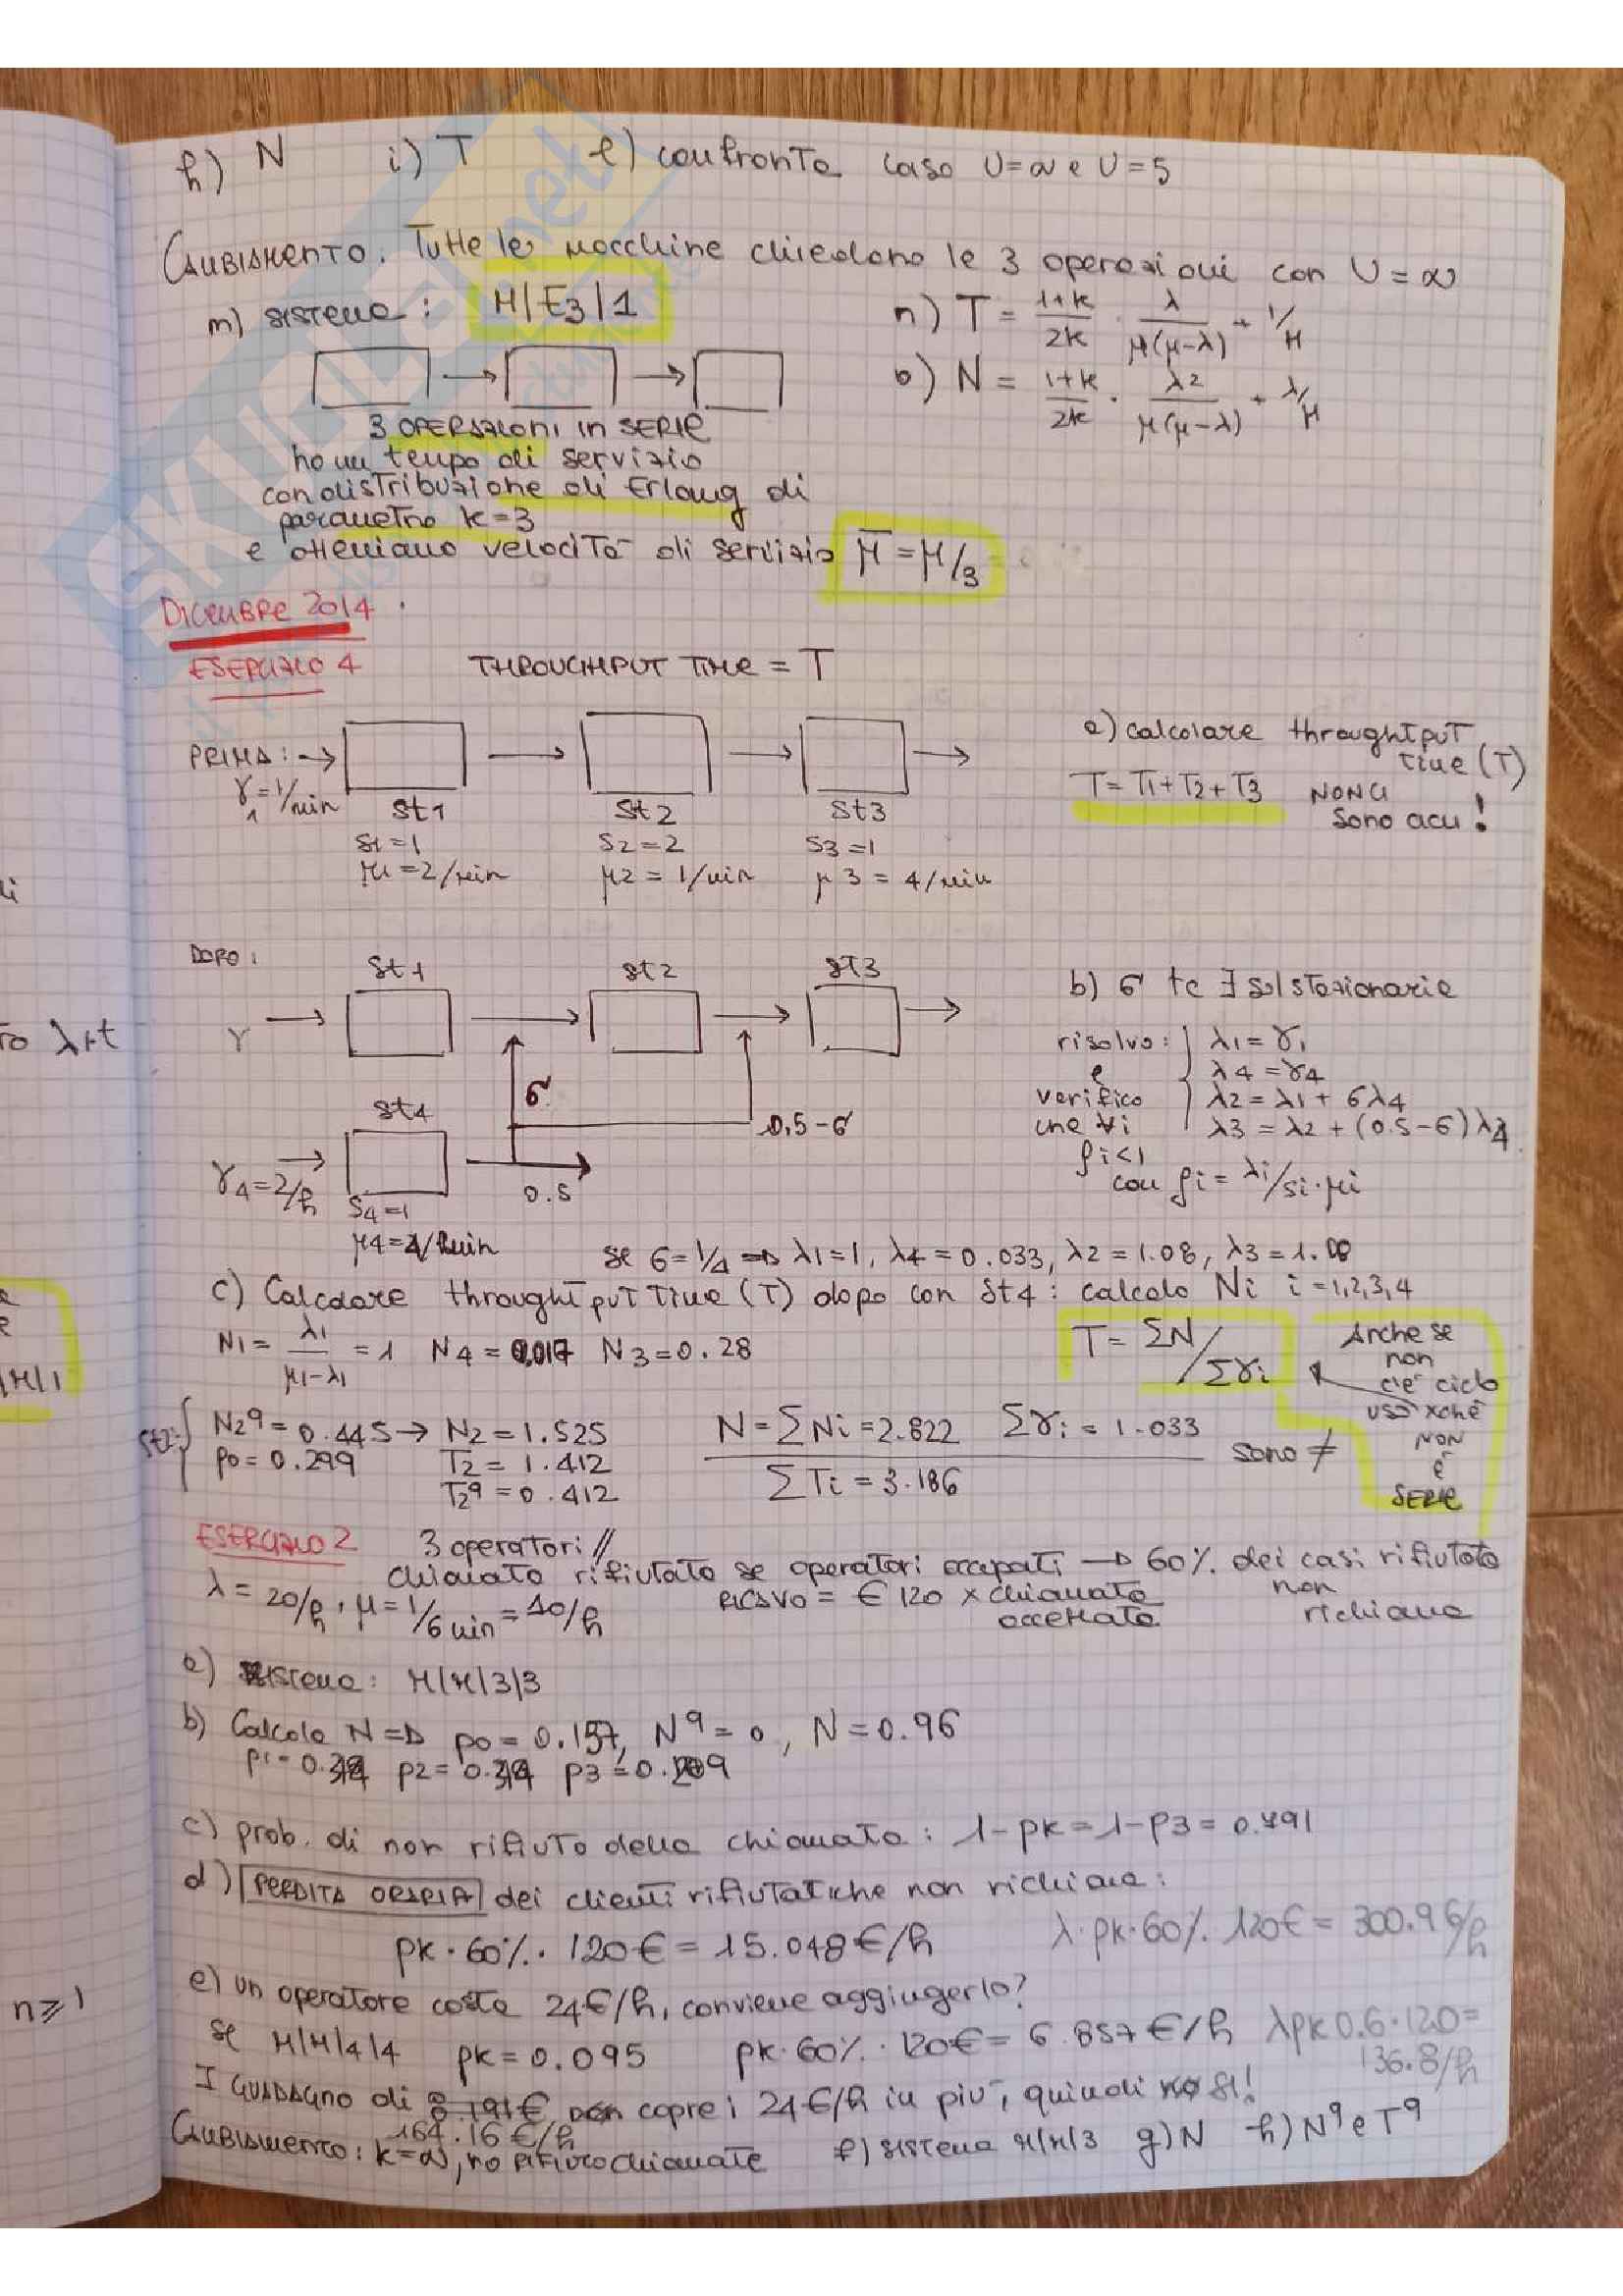 h) N i) T l) confronto caso U=∞ e U=5
CAMBIAMENTO. Tutte le macchine chiedono le 3 operazioni con U=∞
m) SISTEMA: M|E3|1
n) T = 1+k/2k · λ/μ(μ-λ) + 1/μ
o) N = 1+k/2k · λ2/μ(μ-λ) + λ/μ
3 OPERAZIONI IN SERIE
ho un tempo di servizio
con distribuzione di Erlang di
parametro k=3
e otteniamo velocità di servizio μ̄ = μ/3
DICEMBRE 2014
ESERCIZIO 4 THROUGHPUT TIME = T
PRIMA:
γ1=1/min
St1 St2 St3
S1=1 S2=2 S3=1
μ1=2/min μ2=1/min μ3=4/min
a) calcolare throughtput
time (T)
T=T1+T2+T3 NON CI
SONO ACU!
DOPO:
St1 St2 St3
γ
σ
0.5-σ
St4
γ4=2/h
0.5
S4=1
b) σ tc ∃ sol stazionaria
risolvo: λ1=γ1
e λ4=γ4
verifico λ2=λ1+σλ4
che ∀i λ3=λ2+(0.5-σ)λ4
ρi<1
con ρi=λi/si·μi
se σ=1/4 => λ1=1, λ4=0.033, λ2=1.08, λ3=1.
c) Calcolare throughtput time (T) dopo con St4: calcolo Ni i=1,2,3,4
N1=λ1/μ1-λ1=1 N4=0.017 N3=0.28
T=ΣN/Σγi
Anche se
non
c'è ciclo
uso xchè
NON
È
SERIE
St2: N2q=0.445→ N2=1.525
p0=0.299 T2=1.412
T2q=0.412
N=ΣNi=2.822 Σγi=1.033
ΣTi=3.186
sono ≠
ESERCIZIO 2 3 operatori //
chiamata rifiutata se operatori occupati → 60% dei casi rifiutato
non
richiama
λ=20/h, μ=1/6 min=10/h RICAVO=€120 x chiamata
accettata
a) SISTEMA: M/M/3/3
b) Calcolo N => p0=0.157, Nq=0, N=0.96
c) prob. di non rifiuto della chiamata: 1-pk=1-p3=0.791
d) PERDITA ORARIA dei clienti rifiutati che non richiama:
pk·60%·120€=15.048€/h λ·pk·60%·120€=300.96/h
e) un operatore costa 24€/h, conviene aggiungerlo?
se M/M/4/4 pk=0.095 pk·60%·120€=6.857€/h λpk0.6·120=
136.8/h
I GUADAGNO di 8.191€ non copre i 24€/h in più, quindi NO SI!
164.16€/h
CAMBIAMENTO: k=∞, no rifiuto chiamate f) SISTEMA M/M/3 g) N h) Nq e Tq
λ+t
n≥1